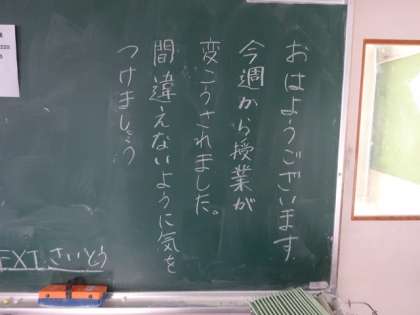 おはようございます
今週から授業が
変こうされました。
間違えないように気を
つけましょう
EXT.さいとう